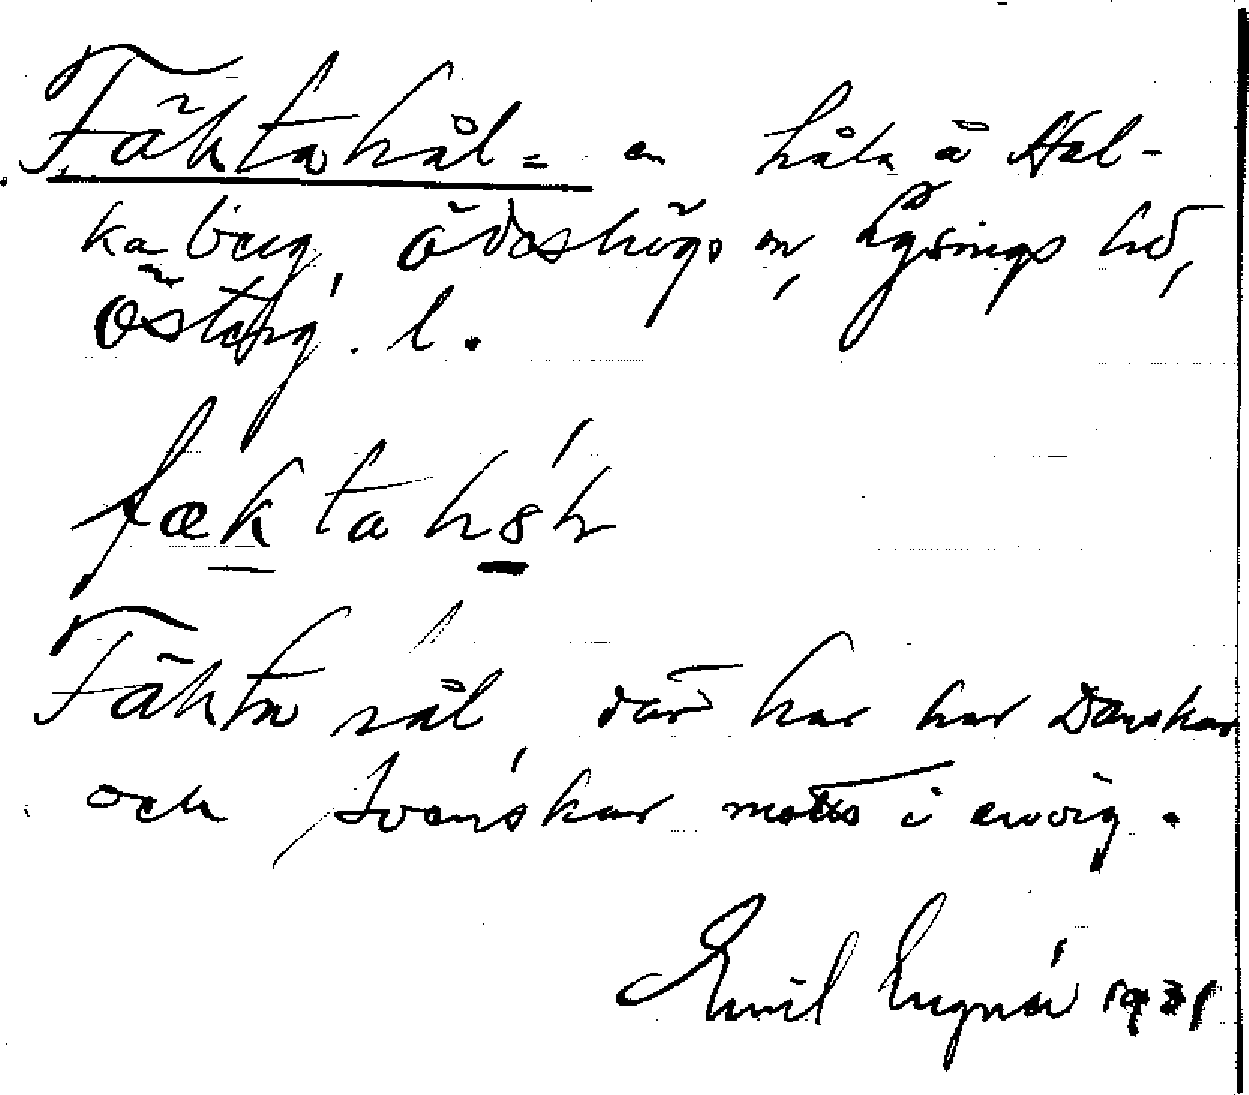 Fäktahål = en håla å Hol-
kaberg, Ödeshögs sn, Lysings hd,
Österg. l.
fækta
Fäkta hål, där har har Danskar
och Svenskar mötts i envig.
Emil 1931